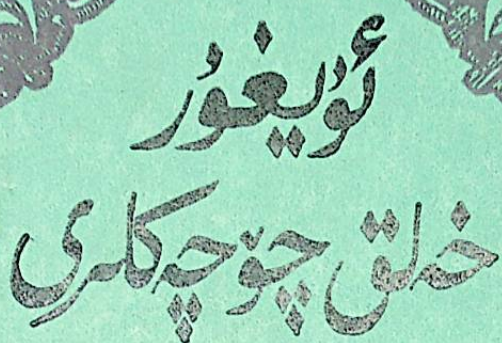 ئۇيغۇر
خەلق چۆچەكلىرى